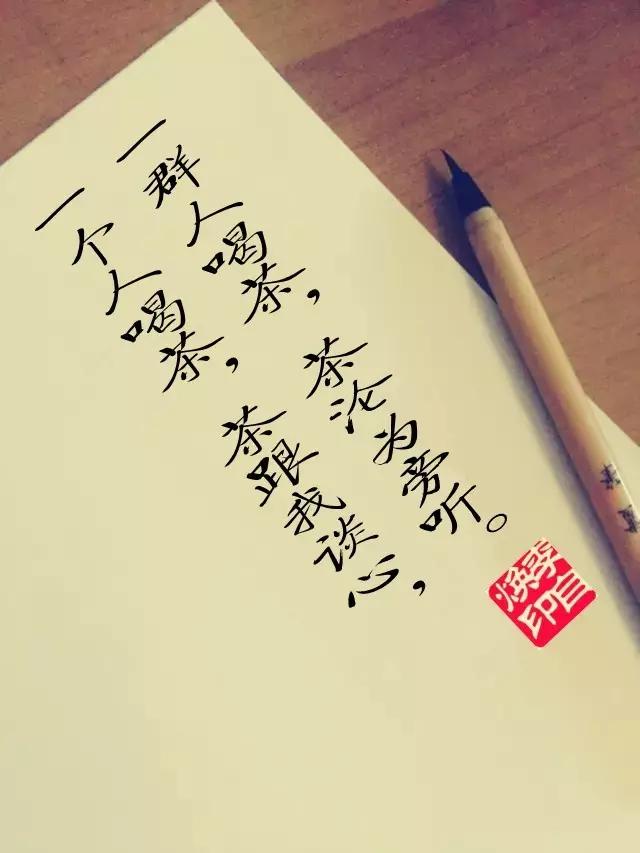 一个人喝茶，茶跟我谈心，
一群人喝茶，茶沦为旁听。
李自焕印